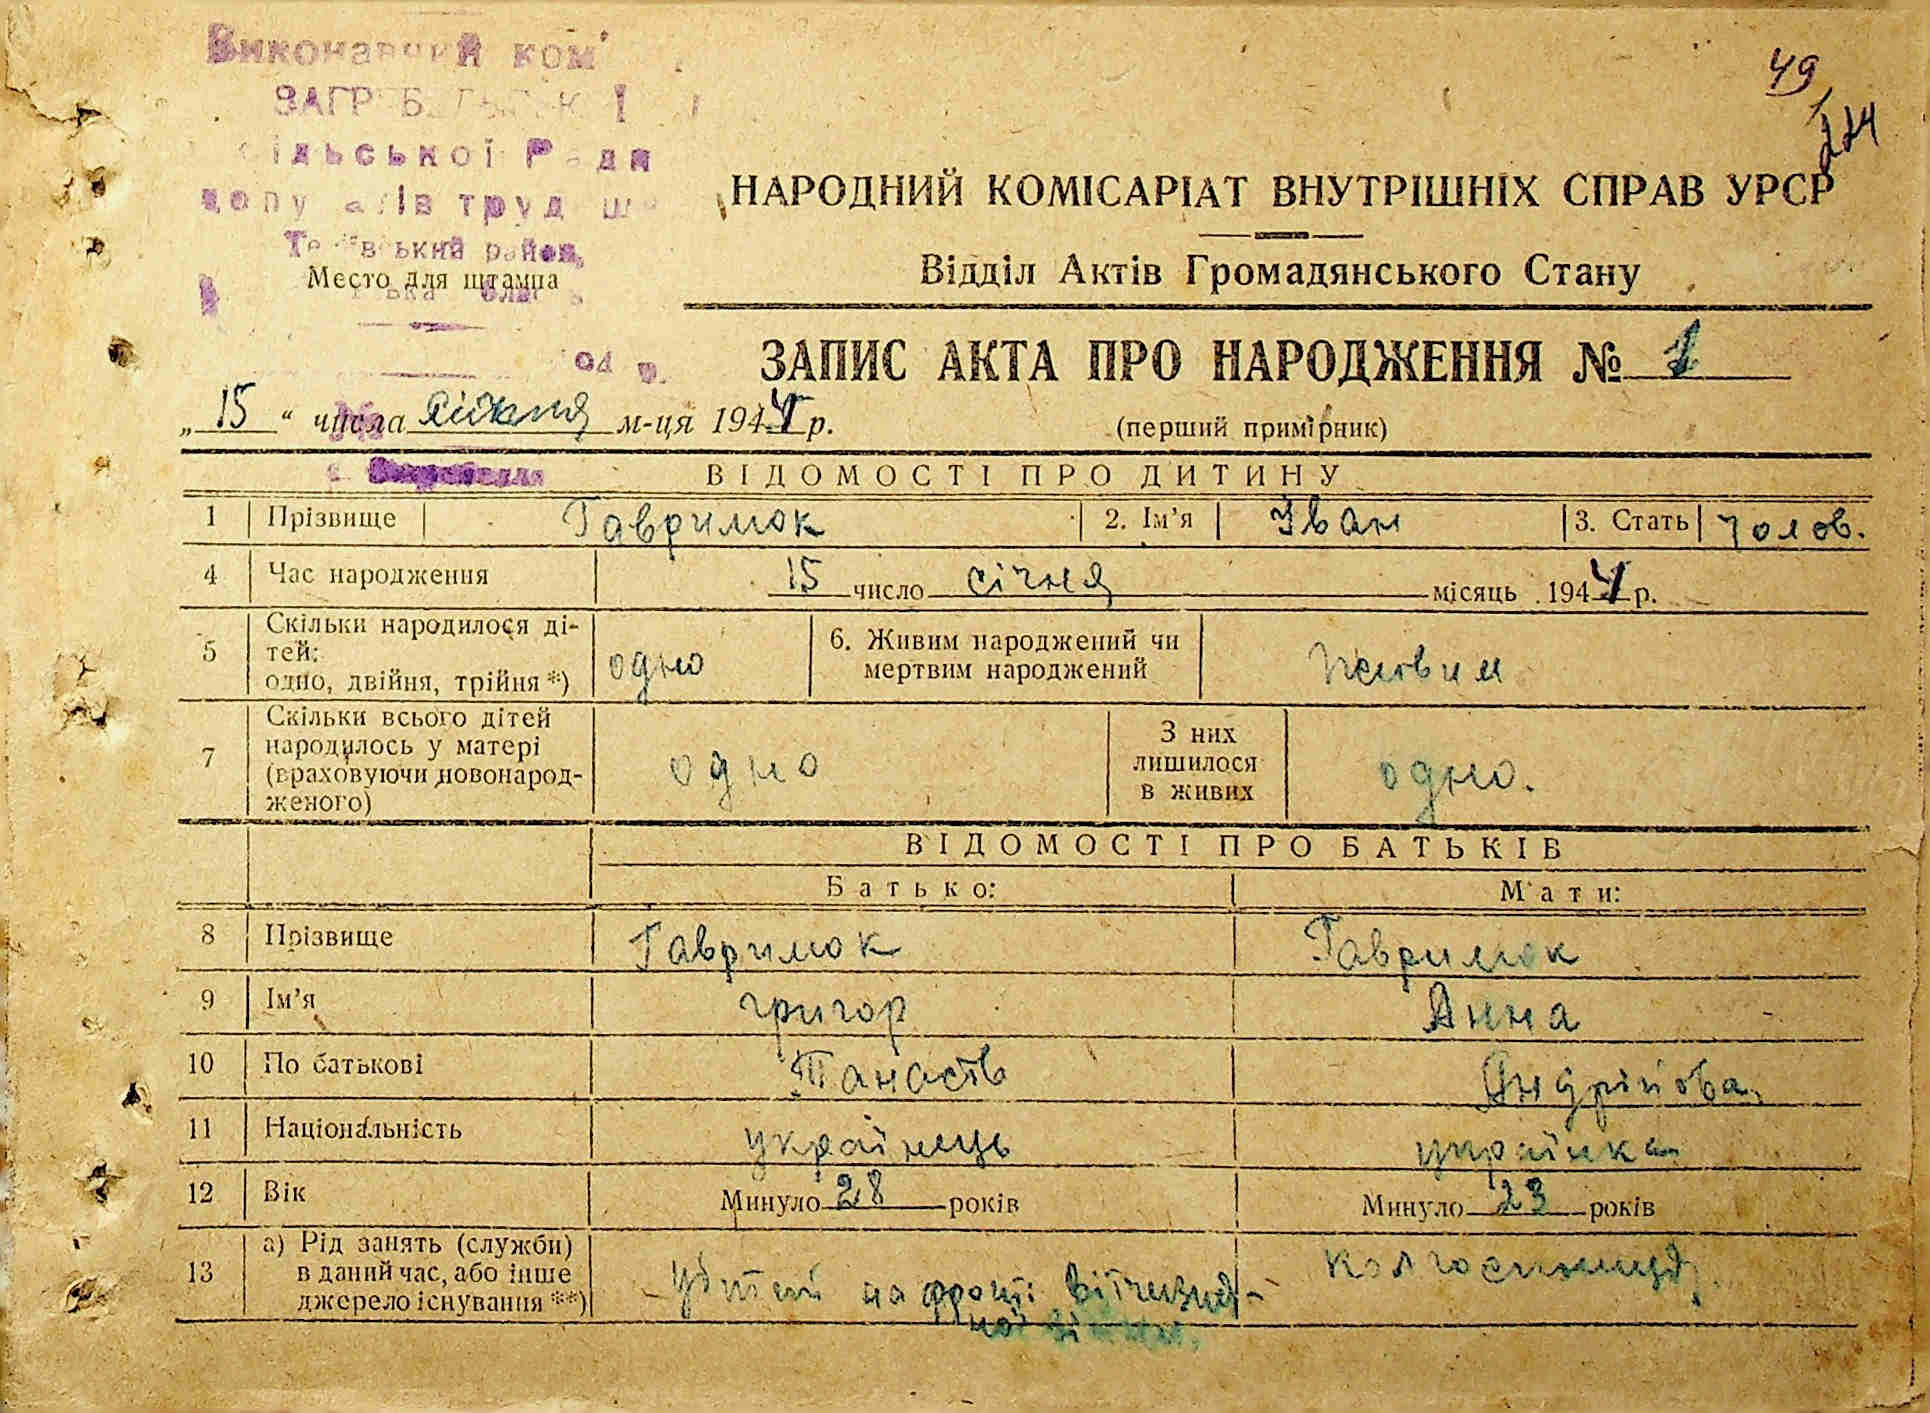 Виконавчий ком
сільської Ради
район,
Место для штампа
49
224
НАРОДНИЙ КОМІСАРІАТ ВНУТРІШНІХ СПРАВ УРСР
Відділ Актів Громадянського Стану
ЗАПИС АКТА ПРО НАРОДЖЕННЯ № 1
„ 15 “ числа січня м-ця 1944 р.
(перший примірник)
ВІДОМОСТІ ПРО ДИТИНУ
1 Прізвище Гаврилюк 2. Ім’я Іван 3. Стать чолов.
4 Час народження 15 число січня місяць 1944 р.
5 Скільки народилося ді-
тей:
одно, двійня, трійня *) одно 6. Живим народжений чи
мертвим народжений живим
7 Скільки всього дітей
народилось у матері
(враховуючи новонарод-
женого) одно З них
лишилося
в живих одно.
ВІДОМОСТІ ПРО БАТЬКІВ
Батько: Мати:
8 Прізвище Гаврилюк Гаврилюк
9 Ім’я григор Анна
10 По батькові Танасів Андрійова
11 Національність українець українка
12 Вік Минуло 28 років Минуло 23 років
13 а) Рід занять (служби)
в даний час, або інше
джерело існування **) Убитий на фронті вітчизня-
ної війни. колгоспниця.